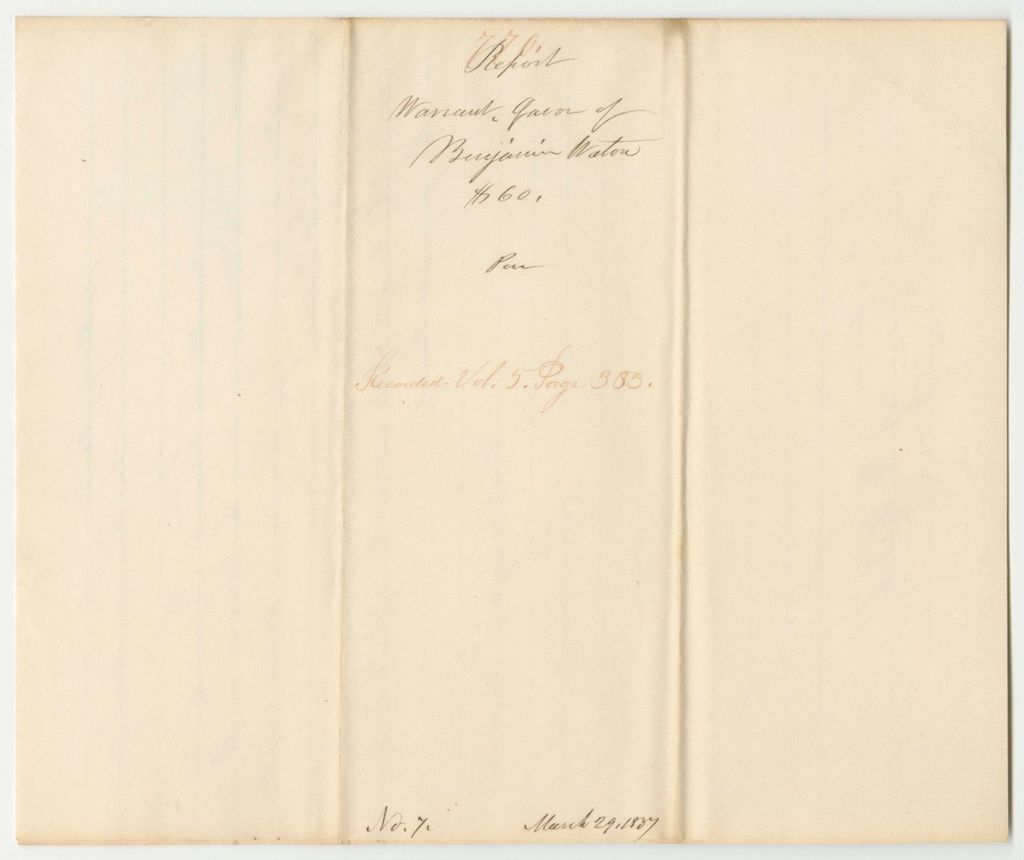 770.
Report
Warrant, favor of
Benjamin Waton
$60.
Recorded. Vol. 5. Page 383.
No. 7. March 29, 1837